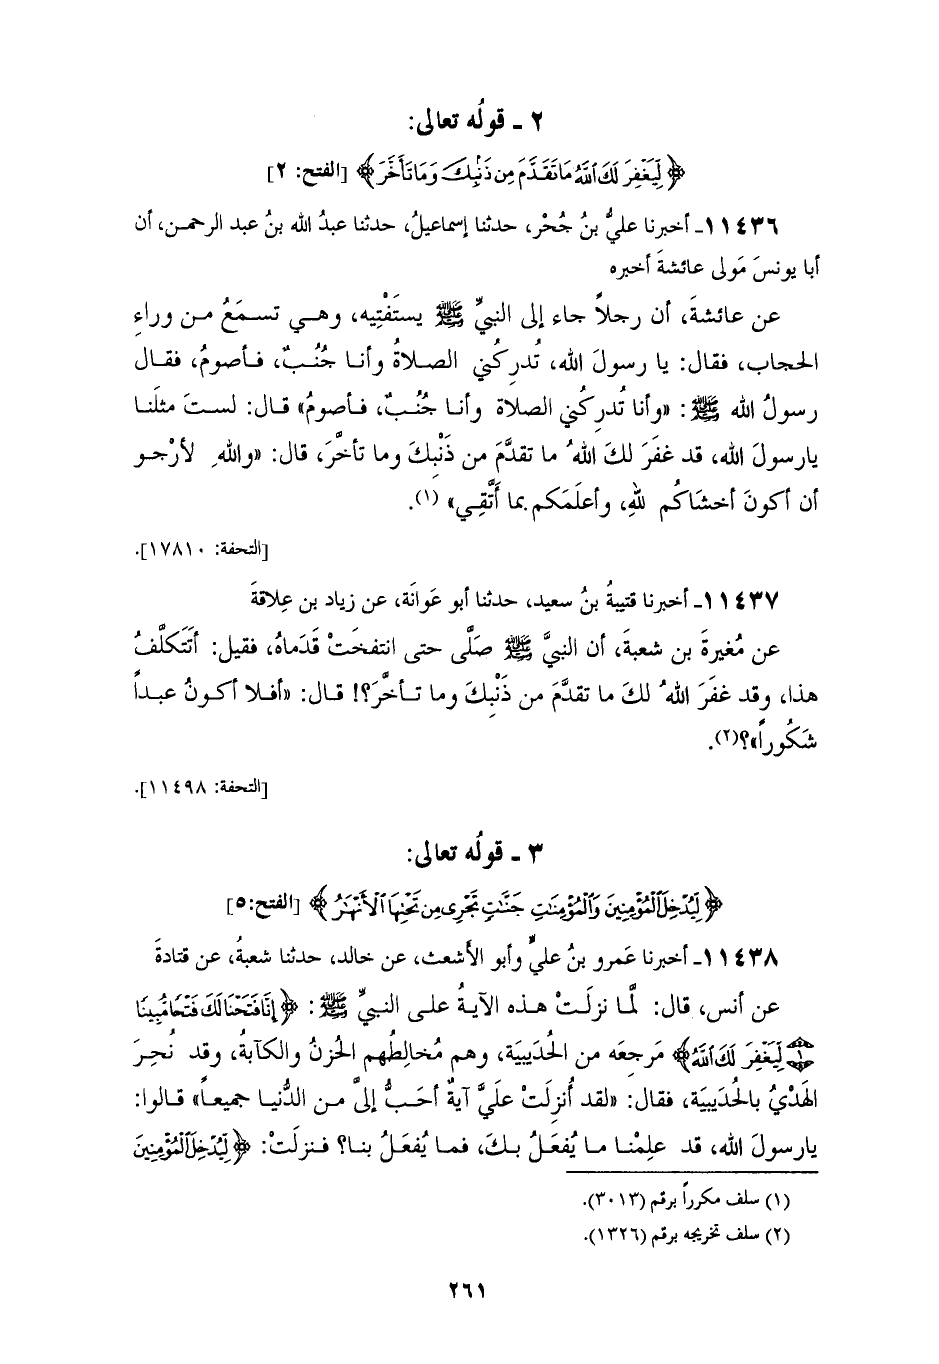 ٢ ـ قولُه تعالى:
﴿لِّيَغْفِرَ لَكَ ٱللَّهُ مَا تَقَدَّمَ مِن ذَنۢبِكَ وَمَا تَأَخَّرَ﴾ [الفتح: ٢]
١١٤٣٦ـ أخبرنا عليُّ بنُ حُجْر، حدثنا إسماعيلُ، حدثنا عبدُ الله بنُ عبد الرحمـن، أن
أبا يونسَ مَولى عائشةَ أخبره
عن عائشةَ، أن رجلاً جاء إلى النبيِّ ﷺ يستَفْتِيه، وهـي تسـمَعُ مـن وراءِ
الحـجاب، فقال: يا رسولَ الله، تُدرِكُني الصـلاةُ وأنـا جُنُـبٌ، فـأصومُ، فقـال
رسولُ الله ﷺ: «وأنا تُدرِكُني الصلاة وأنـا جُنُـبٌ، فـأصومُ» قـال: لسـتَ مثلَنـا
يارسولَ الله، قد غفَرَ لكَ اللهُ ما تقدَّمَ من ذَنْبِكَ وما تأخَّرَ، قال: «واللهِ لأرْجـو
أن أكونَ أخشَاكُم للهِ، وأعلَمَكم بما أَتَّقِـي» (١).
[التحفة: ١٧٨١٠].
١١٤٣٧ـ أخبرنا قتيبةُ بنُ سعيد، حدثنا أبو عَوانَة، عن زياد بن عِلاقةَ
عن مُغيرةَ بن شعبةَ، أن النبيَّ ﷺ صلَّى حتى انتفخَتْ قَدَماهُ، فقيل: أتَتَكلَّفُ
هذا، وقد غفَرَ اللهُ لكَ ما تقدَّمَ من ذَنْبِكَ وما تـأخَّرَ؟! قـال: «أفـلا أكـونُ عبـداً
شَكُوراً»؟(٢).
[التحفة: ١١٤٩٨].
٣ ـ قولُه تعالى:
﴿لِّيُدْخِلَ ٱلْمُؤْمِنِينَ وَٱلْمُؤْمِنَٰتِ جَنَّٰتٍ تَجْرِى مِن تَحْتِهَا ٱلْأَنْهَٰرُ﴾ [الفتح:٥]
١١٤٣٨ـ أخبرنا عَمرو بنُ عليٍّ وأبو الأَشعث، عن خالد، حدثنا شعبةُ، عن قتادةَ
عن أنس، قال: لمَّا نزلَـتْ هـذه الآيـةُ علـى النبيِّ ﷺ: ﴿إِنَّا فَتَحْنَا لَكَ فَتْحًا مُّبِينًا
١ لِّيَغْفِرَ لَكَ ٱللَّهُ﴾ مَرجعَه من الحُدَيبيَة، وهم مُخالِطُهم الحُزنُ والكآبةُ، وقد نُحِرَ
الهَدْيُ بالحُدَيبيَة، فقال: «لقد أُنزِلَتْ علَيَّ آيةٌ أحَبُّ إليَّ مـن الدُّنيـا جميعـاً» قـالوا:
يارسولَ الله، قد علِمْنا ما يُفعَلُ بـكَ، فمـا يُفعَـلُ بنـا؟ فـنزلَتْ: ﴿لِّيُدْخِلَ ٱلْمُؤْمِنِينَ
(١) سلف مكرراً برقم (٣٠١٣).
(٢) سلف تخريجه برقم (١٣٢٦).
٢٦١